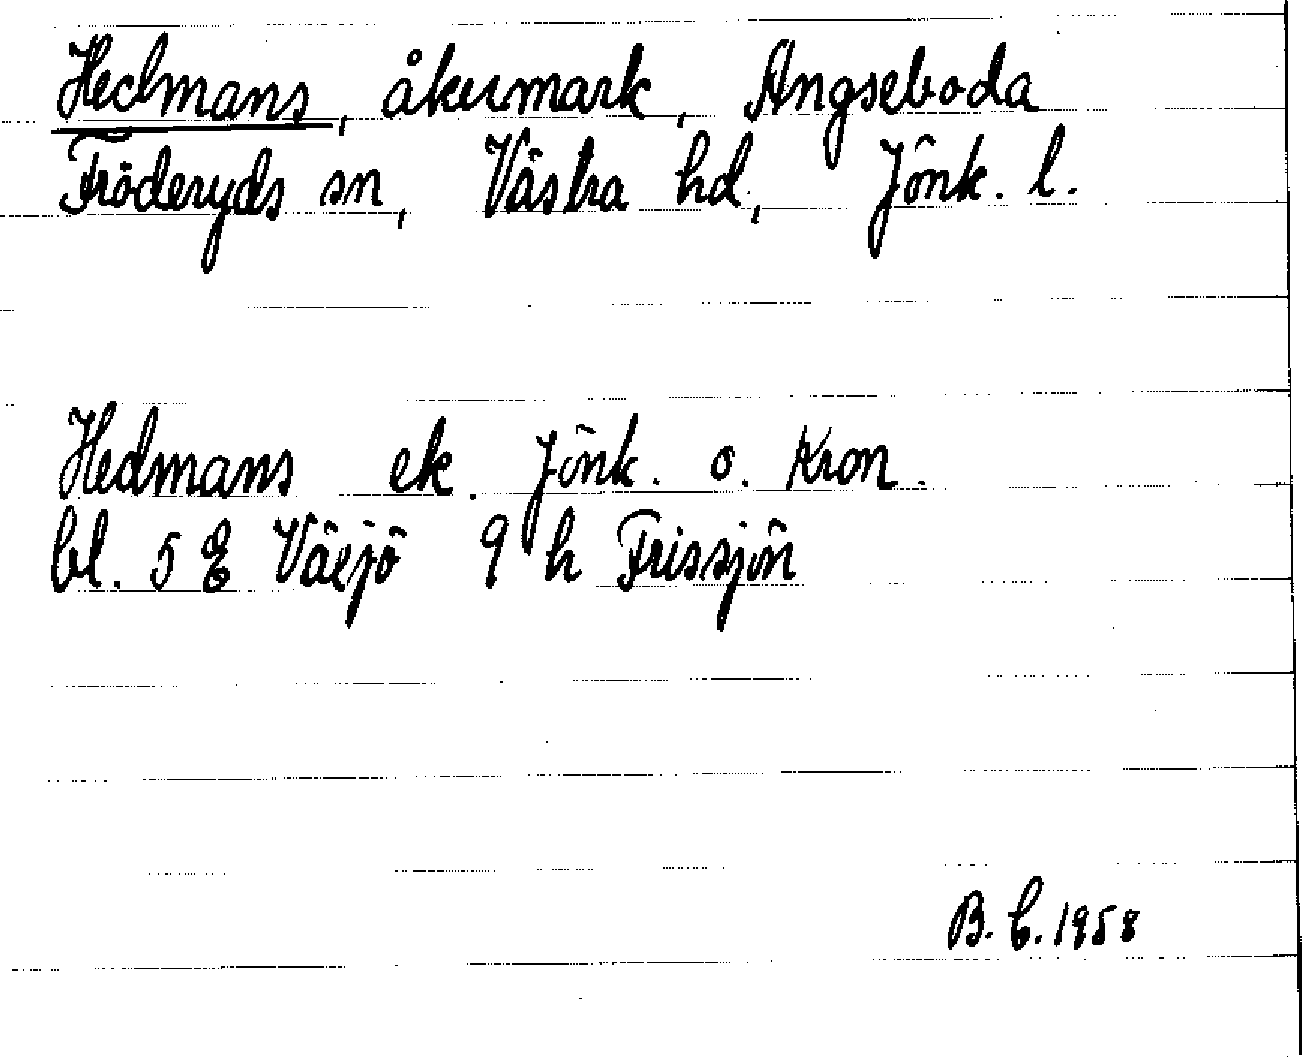 Hedmans, åkermark, Angseboda
Fröderyds sn, Västra hd, Jönk. l.
Hedmans ek. Jönk. o. Kron.
bl. 5 E Växjö 9 h Frissjön
B. C. 1958